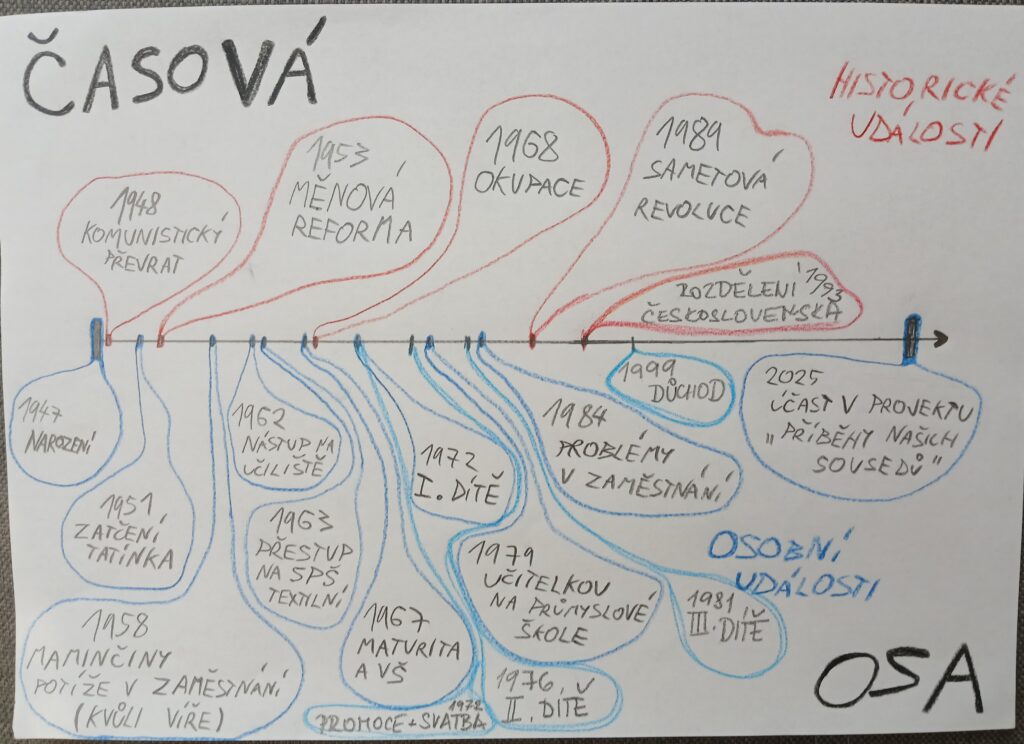 ČASOVÁ
HISTORICKÉ
UDÁLOSTI
1948
KOMUNISTICKÝ
PŘEVRAT
1953
MĚNOVÁ
REFORMA
1968
OKUPACE
1989
SAMETOVÁ
REVOLUCE
1993
ROZDĚLENÍ
ČESKOSLOVENSKA
1947
NAROZENÍ
1951
ZATČENÍ
TATÍNKA
1958
MAMINČINY
POTÍŽE V ZAMĚSTNÁNÍ
(KVŮLI VÍŘE)
1962
NÁSTUP NA
UČILIŠTĚ
1963
PŘESTUP
NA SPŠ
TEXTILNÍ
1967
MATURITA
A VŠ
1972
PROMOCE + SVATBA
1972
I. DÍTĚ
1976
II. DÍTĚ
1979
UČITELKOU
NA PRŮMYSLOVÉ
ŠKOLE
1981
III. DÍTĚ
1984
PROBLÉMY
V ZAMĚSTNÁNÍ
1999
DŮCHOD
2025
ÚČAST V PROJEKTU
„PŘÍBĚHY NAŠICH
SOUSEDŮ"
OSOBNÍ
UDÁLOSTI
OSA